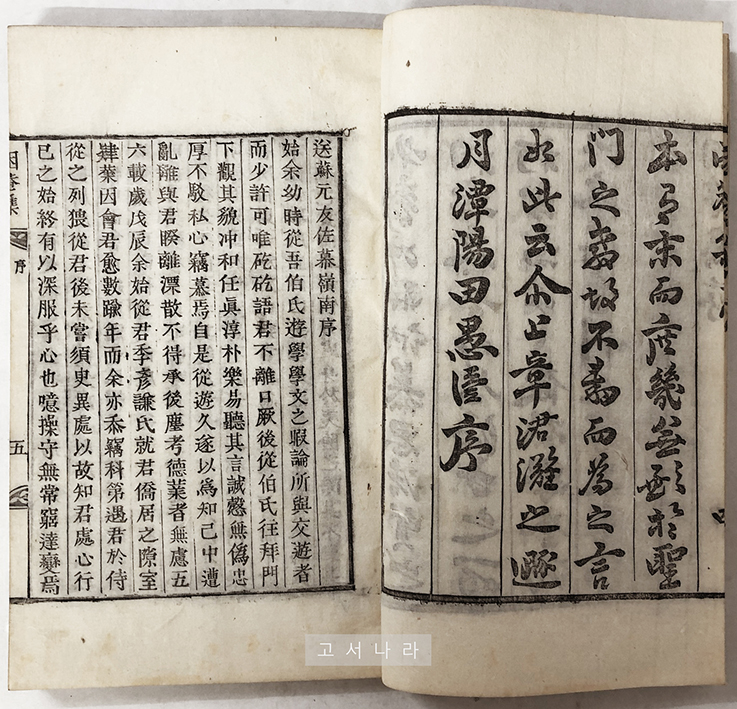 本末而庶幾無於聖
門之不而為之言
如此云尒上章涒灘之遯
月潭陽田愚謹序
送蘇元友佐幕嶺南序
始余幼時從吾伯氏遊學學文之暇論所與交遊者
而少許可唯矻矻語君不離口厥後從伯氏徃拜門
下觀其貌冲和任眞淳朴樂易聽其言誠慤無偽忠
厚不駁私心竊慕焉自是從遊久遂以為知己中遭
亂離與君睽離漂散不得承後塵考德業者無慮五
六載歲戊辰余始從君季彦謙氏就君僑居之隙室
肄業因會君愈數踰年而余亦忝竊科第遇君於侍
從之列猥從君後未嘗須臾異處以故知君處心行
己之始終有以深服乎心也噫操守無常窮達變焉
菴集
序
五
고서나라